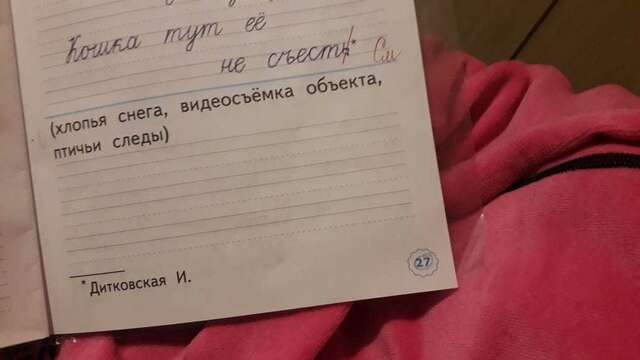 Кошка тут её
не съест!* См
(хлопья снега, видеосъёмка объекта,
птичьи следы)
27
* Дитковская И.